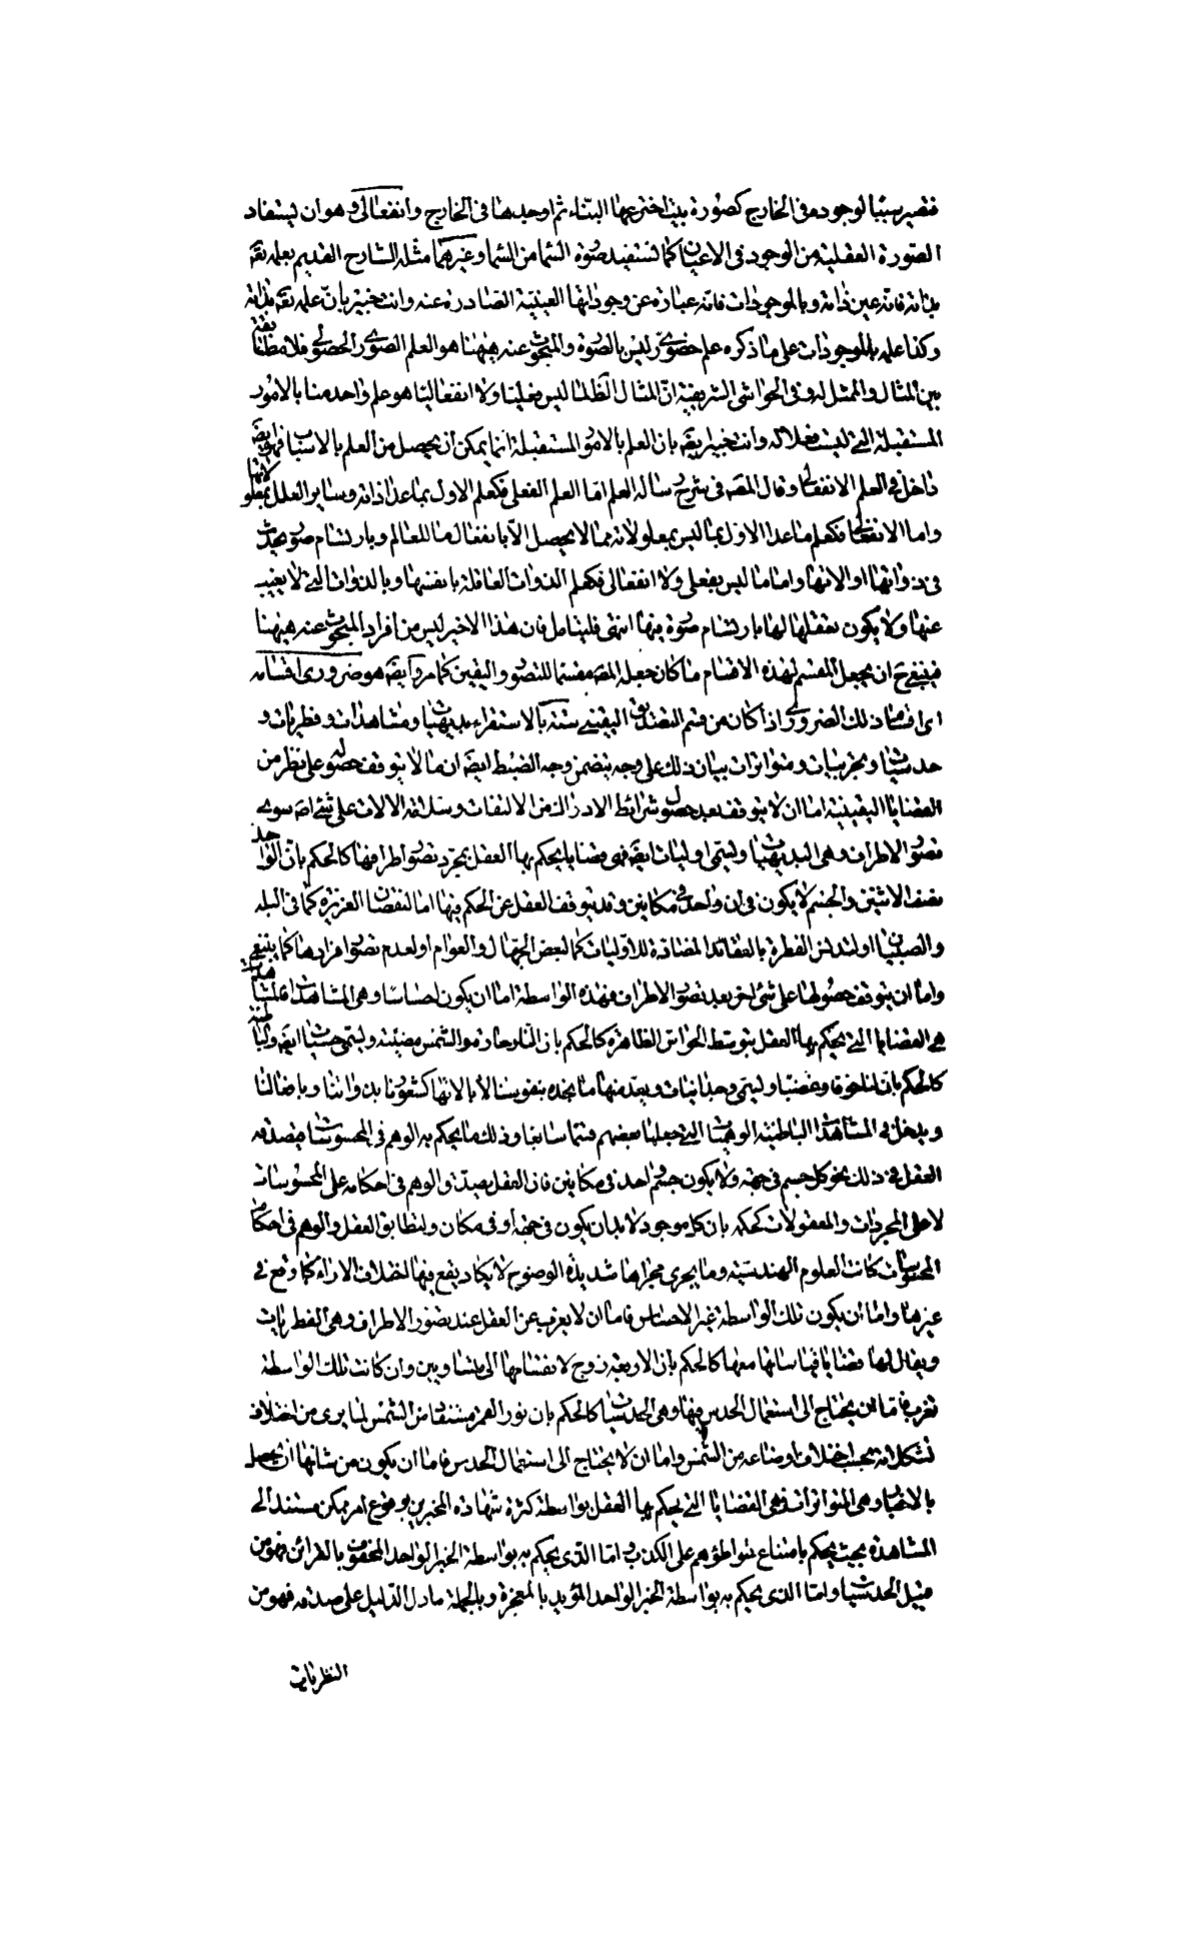 فتصير سببا لوجوده فى الخارج كصورة بيت اخترعها البناء ثم اوجدها فى الخارج وانفعالى وهو ان يستفاد
الصورة العقلية من الوجود فى الاعيان كما نستفيد صورة السماء من السماء وغيرهما مثله الشارح القديم بعلمه تعه
بذاته فانه عين ذاته وبالموجودات فانه عبارة عن وجوداتها العينية الصادرة عنه وانت خبير بان علمه تعه بذاته
وكذا علمه بالموجودات على ما ذكره علم حضورى ليس بالصورة والمبحوث عنه ههنا هو العلم الصورى الحصولى فلا مطابقة
بين المثال والممثل له وفى الحواشى الشريفية ان المثال الظ لما ليس فعليا ولا انفعاليا هو علم واحد منا بالامور
المستقبلة التى ليست فعلا له وانت خبير ايضه بان العلم بالامور المستقبلة انما يمكن ان يحصل من العلم بالاسباب فهو ايضه
داخل فى العلم الانفعالى وقال المصه فى شرح رسالة العلم اما العلم الفعلى فكعلم الاول بما عدا ذاته وسائر العلل بمعلولاتها
واما الانفعالى فكعلم ما عدا الاول بما ليس بمعلولاته مما لا يحصل الا بانفعال ما للعالم وبارتسام صور يحدث
فى ذواتها او الاتها واما ما ليس بفعلى ولا انفعالى فكعلم الذوات العاقلة بانفسها وبالذوات التى لا يغيب
عنها ولا يكون تعقلها لها بارتسام صورة فيها انتهى فليتامل فان هذا الاخير ليس من افراد المبحوث عنه ههنا
فينبغى ح ان يجعل المقسم لهذه الاقسام ما كان جعله المصه مقسما للتصور واليقين كما مر وايضه هو ضرورى اقسامه
اى اقسام ذلك الضرورى اذا كان من قسم التصديق اليقينى ستة بالاستقراء بديهيات ومشاهدات وفطريات و
حدسيات ومجربيات ومتواترات بيان ذلك على وجه يتضمن وجه الضبط ايضه ان ما لا يتوقف حصوله على نظر من
القضايا اليقينية اما ان لا يتوقف بعد حصول شرائط الادراك من الالتفات وسلامة الالات على شئ اصه سوى
تصور الاطراف وهى البديهيات وليسمى اوليات ايضه فهى قضايا يحكم بها العقل بمجرد تصور اطرافها كالحكم بان الواحد
نصف الاثنين والجسم لا يكون فى ان واحد فى مكانين وقد يتوقف العقل عن الحكم فيها اما لنقصان الغريزة كما فى البله
والصبيان او لتدنس الفطرة بالعقائد المضادة للاوليات كما لبعض الجهال والعوام او لعدم تصور افرادها كما ينبغى
واما ان يتوقف حصولها على شئ اخر بعد تصور الاطراف فهذه الواسطة اما ان يكون احساسا وهى المشاهدات
هى القضايا التى يحكم بها العقل بتوسط الحواس الظاهرة كالحكم بان النار حارة والشمس مضيئة وليسمى حسيات ايضه او الباطنة
كالحكم بان لنا خوفا وغضبا وليسمى وجدانيات ويعد منها ما نجده بنفوسنا لا بالاتها كشعورنا بذواتنا وبافعالنا
ويدخل فى المشاهدات الباطنية الوهميات التى جعلها بعضهم قسما سابعا وذلك ما يحكم به الوهم فى المحسوسات فيصدقه
العقل فى ذلك نحو كل جسم فى جهة ولا يكون جسم واحد فى مكانين فان العقل يصدق الوهم فى احكامه على المحسوسات
لا على المجردات والمعقولات كحكمه بان كل موجود لابد ان يكون فى جهة او فى مكان ولتطابق العقل والوهم فى احكام
المحسوسات كانت العلوم الهندسية وما يجرى مجراها شديدة الوضوح لا يكاد يقع فيها اختلاف الاراء كما وقع فى
غيرها واما ان يكون تلك الواسطة غير الاحساس فاما ان لا يعزب عن العقل عند تصور الاطراف وهى الفطريات
ويقال لها قضايا قياساتها معها كالحكم بان الاربعة زوج لانقسامها الى متساويين وان كانت تلك الواسطة
تعزب فاما ان يحتاج الى استعمال الحدس فيها وهى الحدسيات كالحكم بان نور القمر مستفاد من الشمس لما يرى من اختلاف
تشكلاته بحسب اختلاف اوضاعه من الشمس واما ان لا يحتاج الى استعمال الحدس فاما ان يكون من شانها ان يحصل
بالاخبار وهى المتواترات فهى القضايا التى يحكم بها العقل بواسطة كثرة شهادة المخبرين بوقوع امر ممكن مستند الى
المشاهدة بحيث يحكم بامتناع تواطؤهم على الكذب واما الذى يحكم به بواسطة الخبر الواحد المحفوف بالقرائن فهو من
قبيل الحدسيات واما الذى يحكم به بواسطة الخبر الواحد المؤيد بالمعجزة وبالجملة ما دل الدليل على صدقه فهو من
النظريات